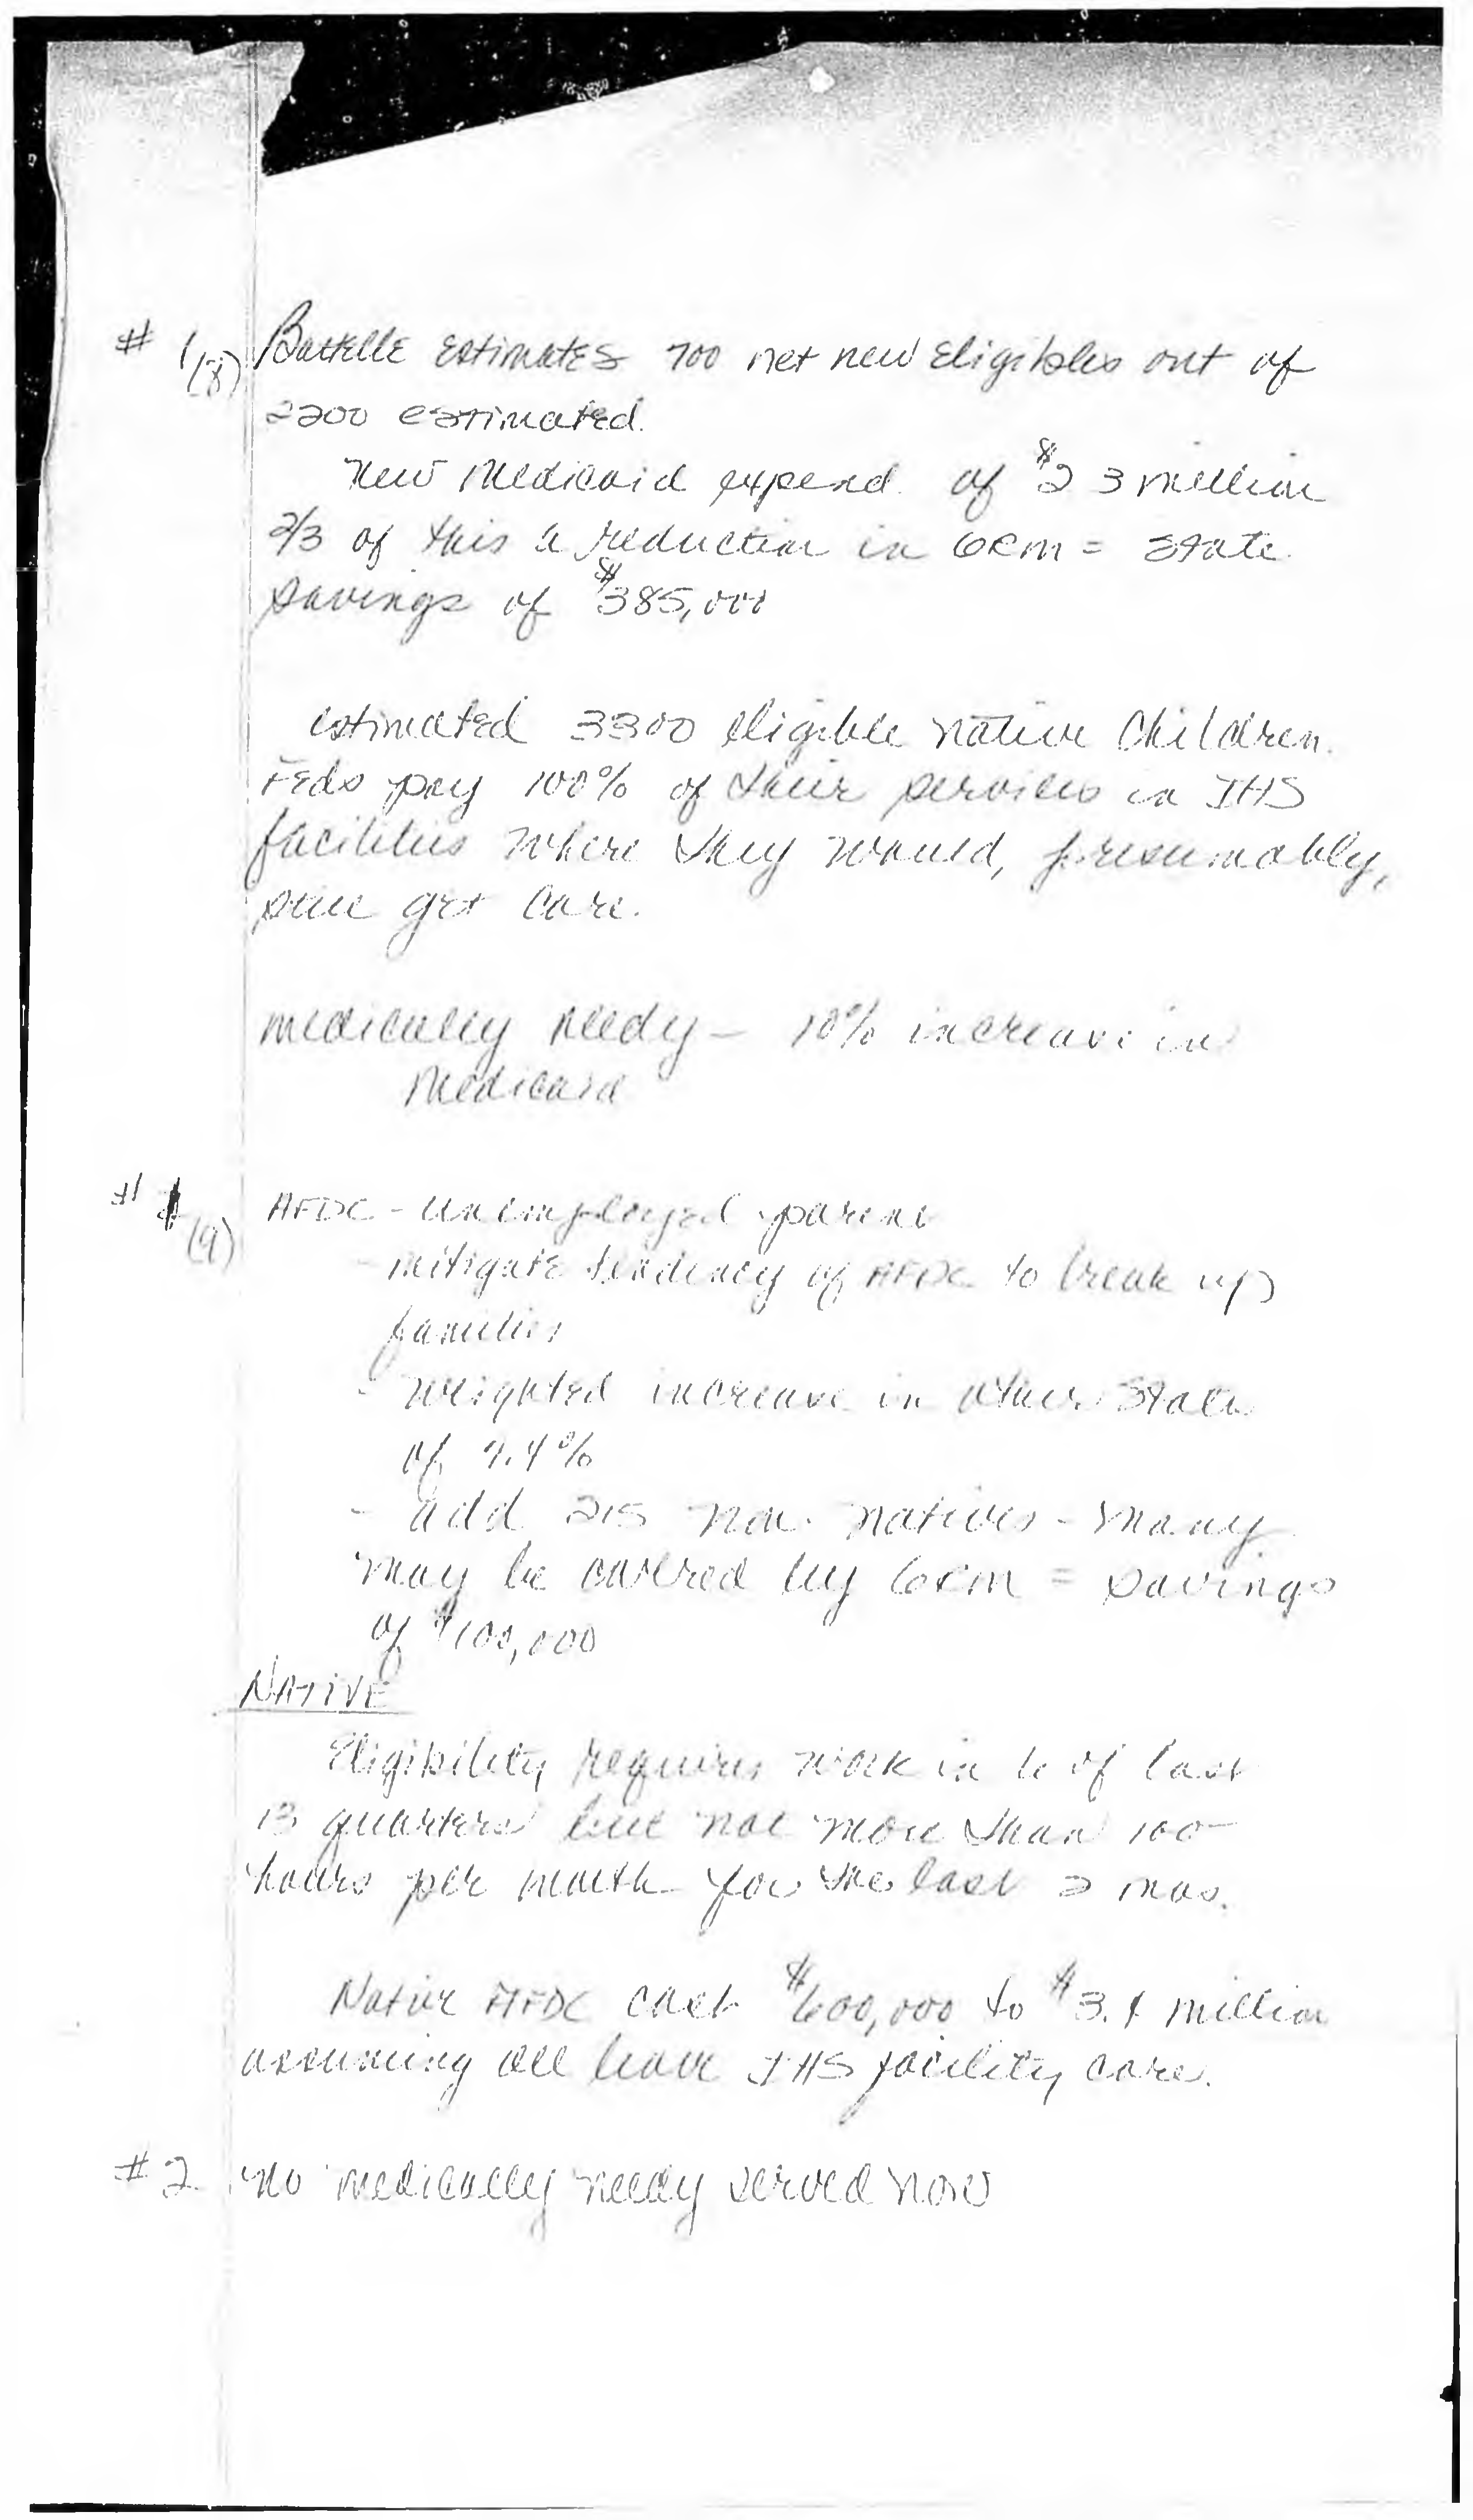 # 1(8) Battelle estimates 700 net new eligibles out of
2200 estimated.
New Medicaid expend. of $2 3 million
2/3 of this a reduction in GRM = State
savings of $385,000
estimated 3300 eligible native children.
Feds pay 100% of their services in IHS
facilities where they would, presumably,
still get care.
medically needy - 10% increase in
Medicaid
# 1 (9) AFDC - Unemployed parent
- mitigate tendency of AFDC to break up
families
- weighted increase in other States
of 9.4%
- add 215 non-natives - many
may be covered by GRM = savings
of $100,000
NATIVE
Eligibility requires work in 6 of last
13 quarters but not more than 100
hours per month for the last 2 mos.
Native AFDC cost $600,000 to $3.1 million
assuming all leave IHS facility care.
# 2 no medically needy served now